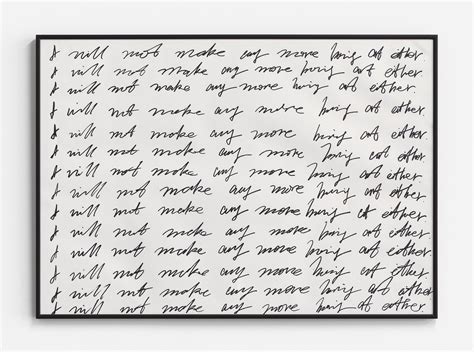 I will not make any more boring art either.
I will not make any more boring art either.
I will not make any more boring art either.
I will not make any more boring art either.
I will not make any more boring art either.
I will not make any more boring art either
I will not make any more boring art either.
I will not make any more boring art either.
I will not make any more boring art either
I will not make any more boring art either.
I will not make any more boring art either.
I will not make any more boring art either
I will not make any more boring art either
I will not make any more boring art either.